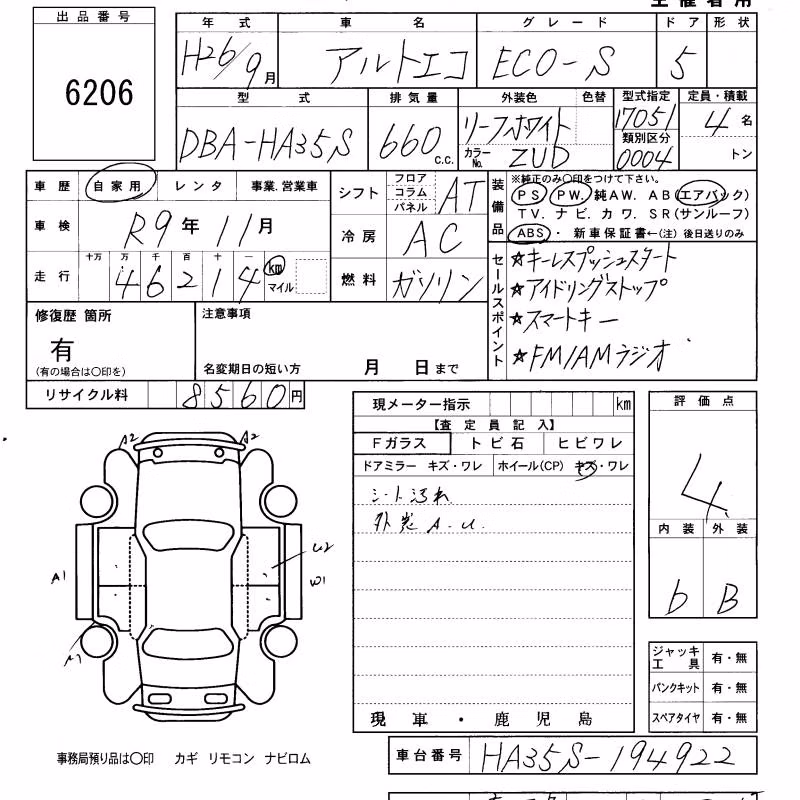 主催者用
出品番号
6206
年式 車名 グレード ドア 形状
H26/9月 アルトエコ ECO-S 5
型式 排気量 外装色 色替 型式指定 定員・積載
DBA-HA35S 660 C.C. リーフホワイト 17051 4名
カラーNo. ZUD 類別区分 0004 トン
車歴 自家用 レンタ 事業.営業車
シフト フロア コラム パネル AT
装備品 ※純正のみ〇印をつけて下さい。
PS PW. 純AW. AB(エアバック)
TV. ナビ. カワ. SR(サンルーフ)
ABS・新車保証書←(注)後日送りのみ
車検 R9年11月
冷房 AC
走行 十万 万 千 百 十 一
46214 km マイル
燃料 ガソリン
セールスポイント
☆キーレスプッシュスタート
☆アイドリングストップ
☆スマートキー
☆FM/AMラジオ
修復歴 箇所
有
(有の場合は〇印を)
注意事項
名変期日の短い方 月 日まで
リサイクル料 8560円
現メーター指示 km
【査定員記入】
Fガラス トビ石 ヒビワレ
ドアミラー キズ・ワレ ホイール(CP) キズ・ワレ
シート汚れ
外装 A.U.
現車・鹿児島
評価点
4
内装 外装
b B
A2 A2
U2
A1 W1
ジャッキ工具 有・無
パンクキット 有・無
スペアタイヤ 有・無
事務局預り品は〇印 カギ リモコン ナビロム
車台番号 HA35S-194922